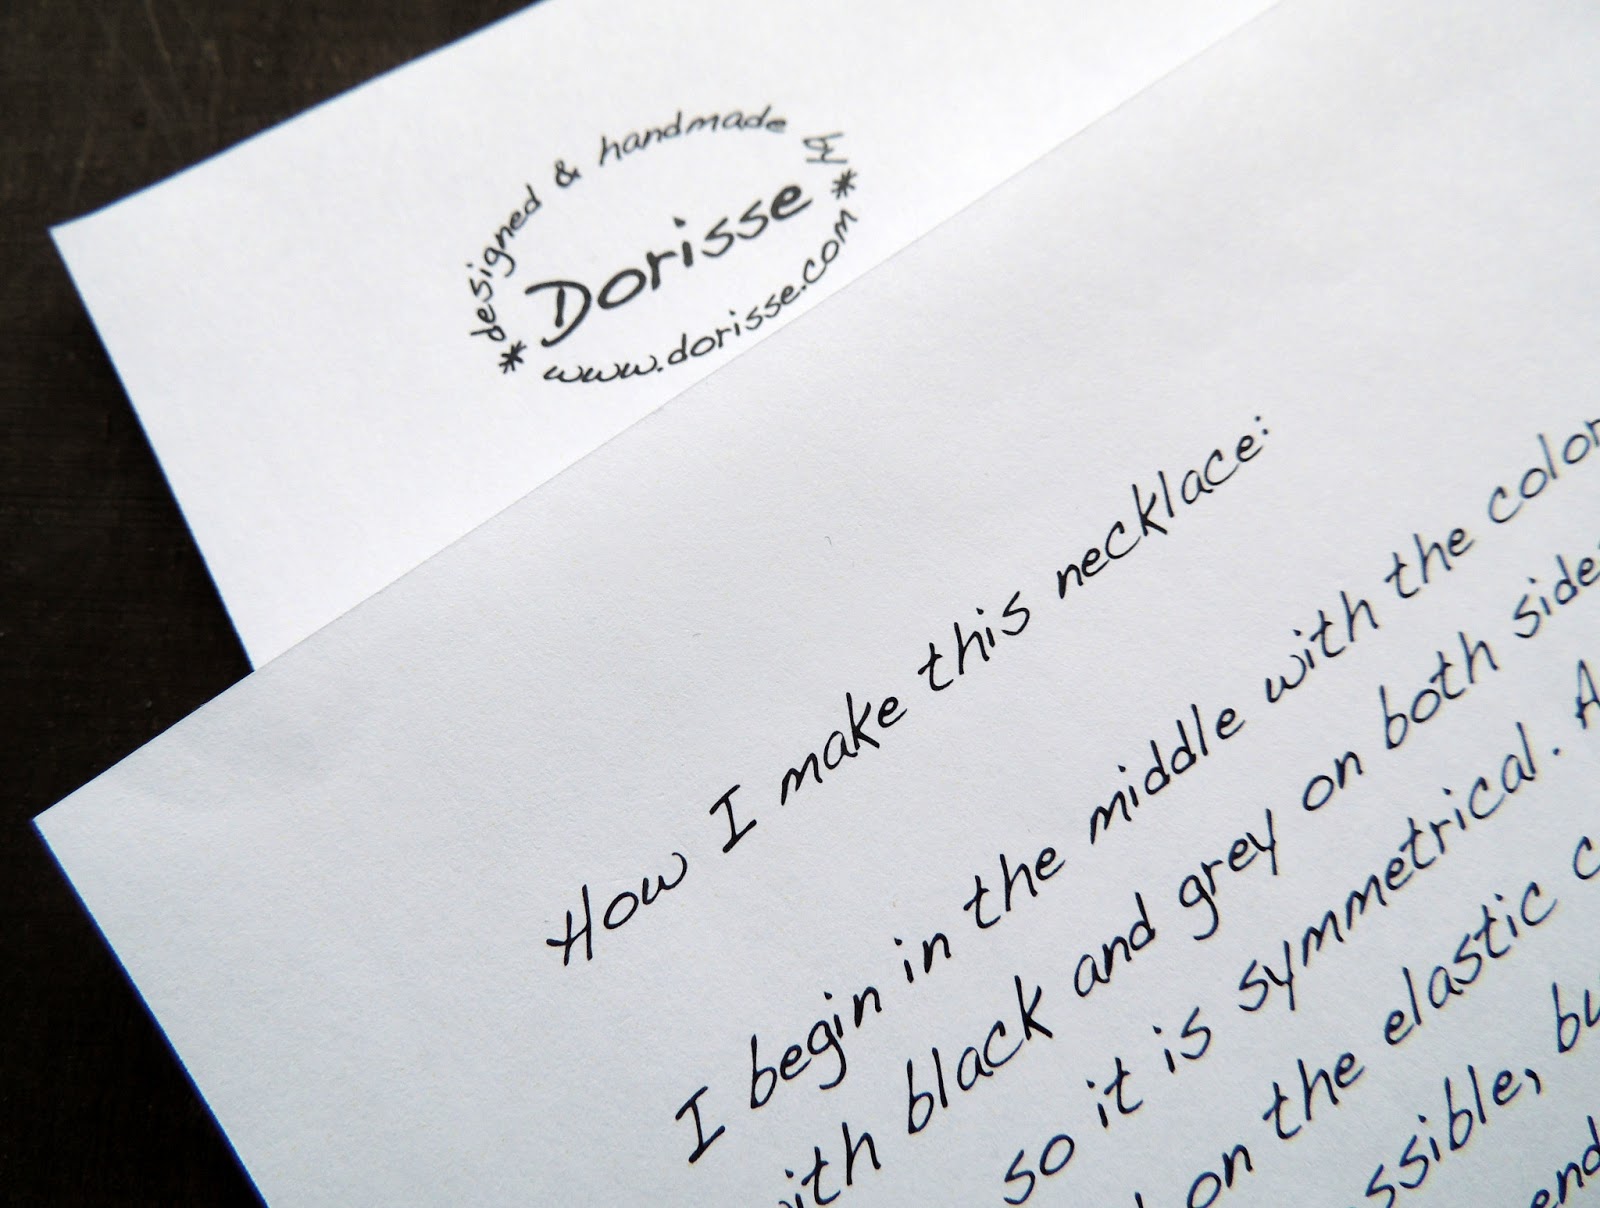 * designed & handmade by *
Dorisse
www.dorisse.com
How I make this necklace:
I begin in the middle with the color
ith black and grey on both side
so it is symmetrical. A
on the elastic c
ssible, bu
end